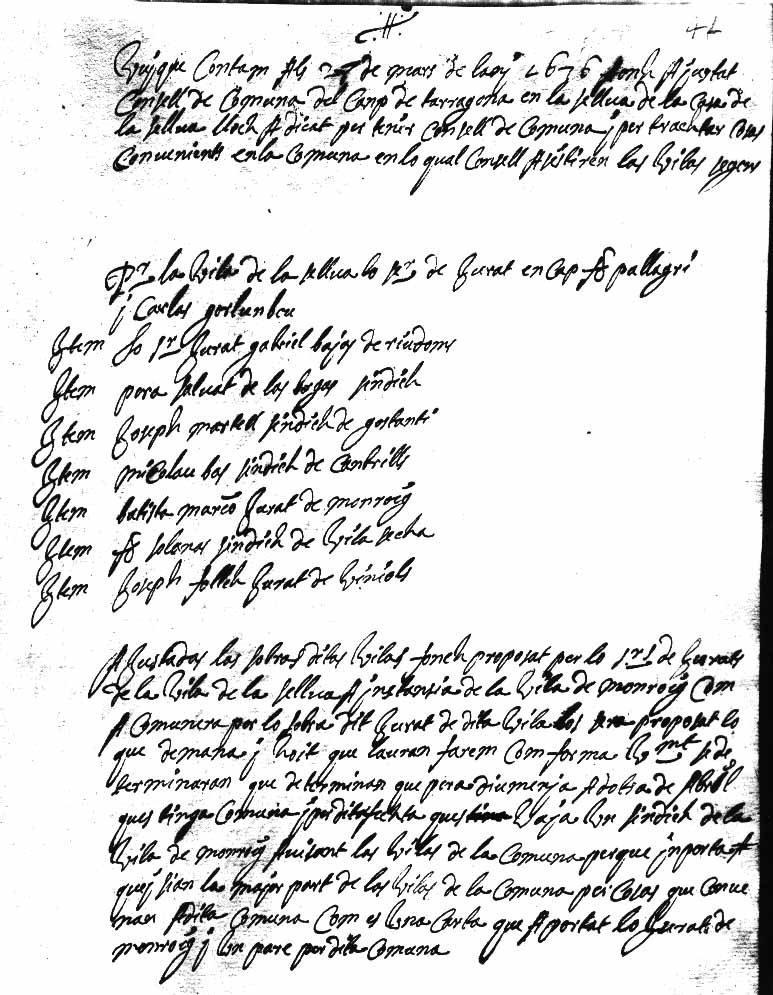 42
Vuy que Contam Als 27 de mars de lany 1676 fonch Ajustat
Consell de Comuna del Camp de tarragona en la sellua de la Casa de
la sellua lloch Adicat per tenir Consell de Comuna j per tractar Cosas
Conuenients en la Comuna en lo qual Consell Asistiren las Vilas seguens
Pr la Vila de la sellua lo sr de Jurat en Cap fc pallagri
j Carlas
Item lo sr Jurat gabriel bajes de riudoms
Item pera saluat de las borgas sindich
Item Joseph martell sindich de gostanti
Item nicolau bas sindich de Cambrills
Item batista marco Jurat de monroig
Item fc solanas sindich de Vila secha
Item Joseph folch Jurat de Viniols
Aiustadas las sobra ditas Vilas fonch proposat per lo srs de Jurats
de la Vila de la sellua A instansia de la Vila de monroig Com
A Comunera por lo sobra dit Jurat de dita Vila los sera proposat lo
que demana j hoit que lauran farem Com forma Vmt se de
terminaran que determinan que pera diumenja A dotza de Abril
ques tinga Comuna j per dit efecta ques Vaja Un sindich de la
Vila de monroig Auisant las Vilas de la Comuna perque inporta A
quej sian la major part de las Vilas de la Comuna per Cosas que Conue
nan A dita Comuna Com es Una Carta que A portat lo Jurat de
monroig j Un pare per dita Comuna